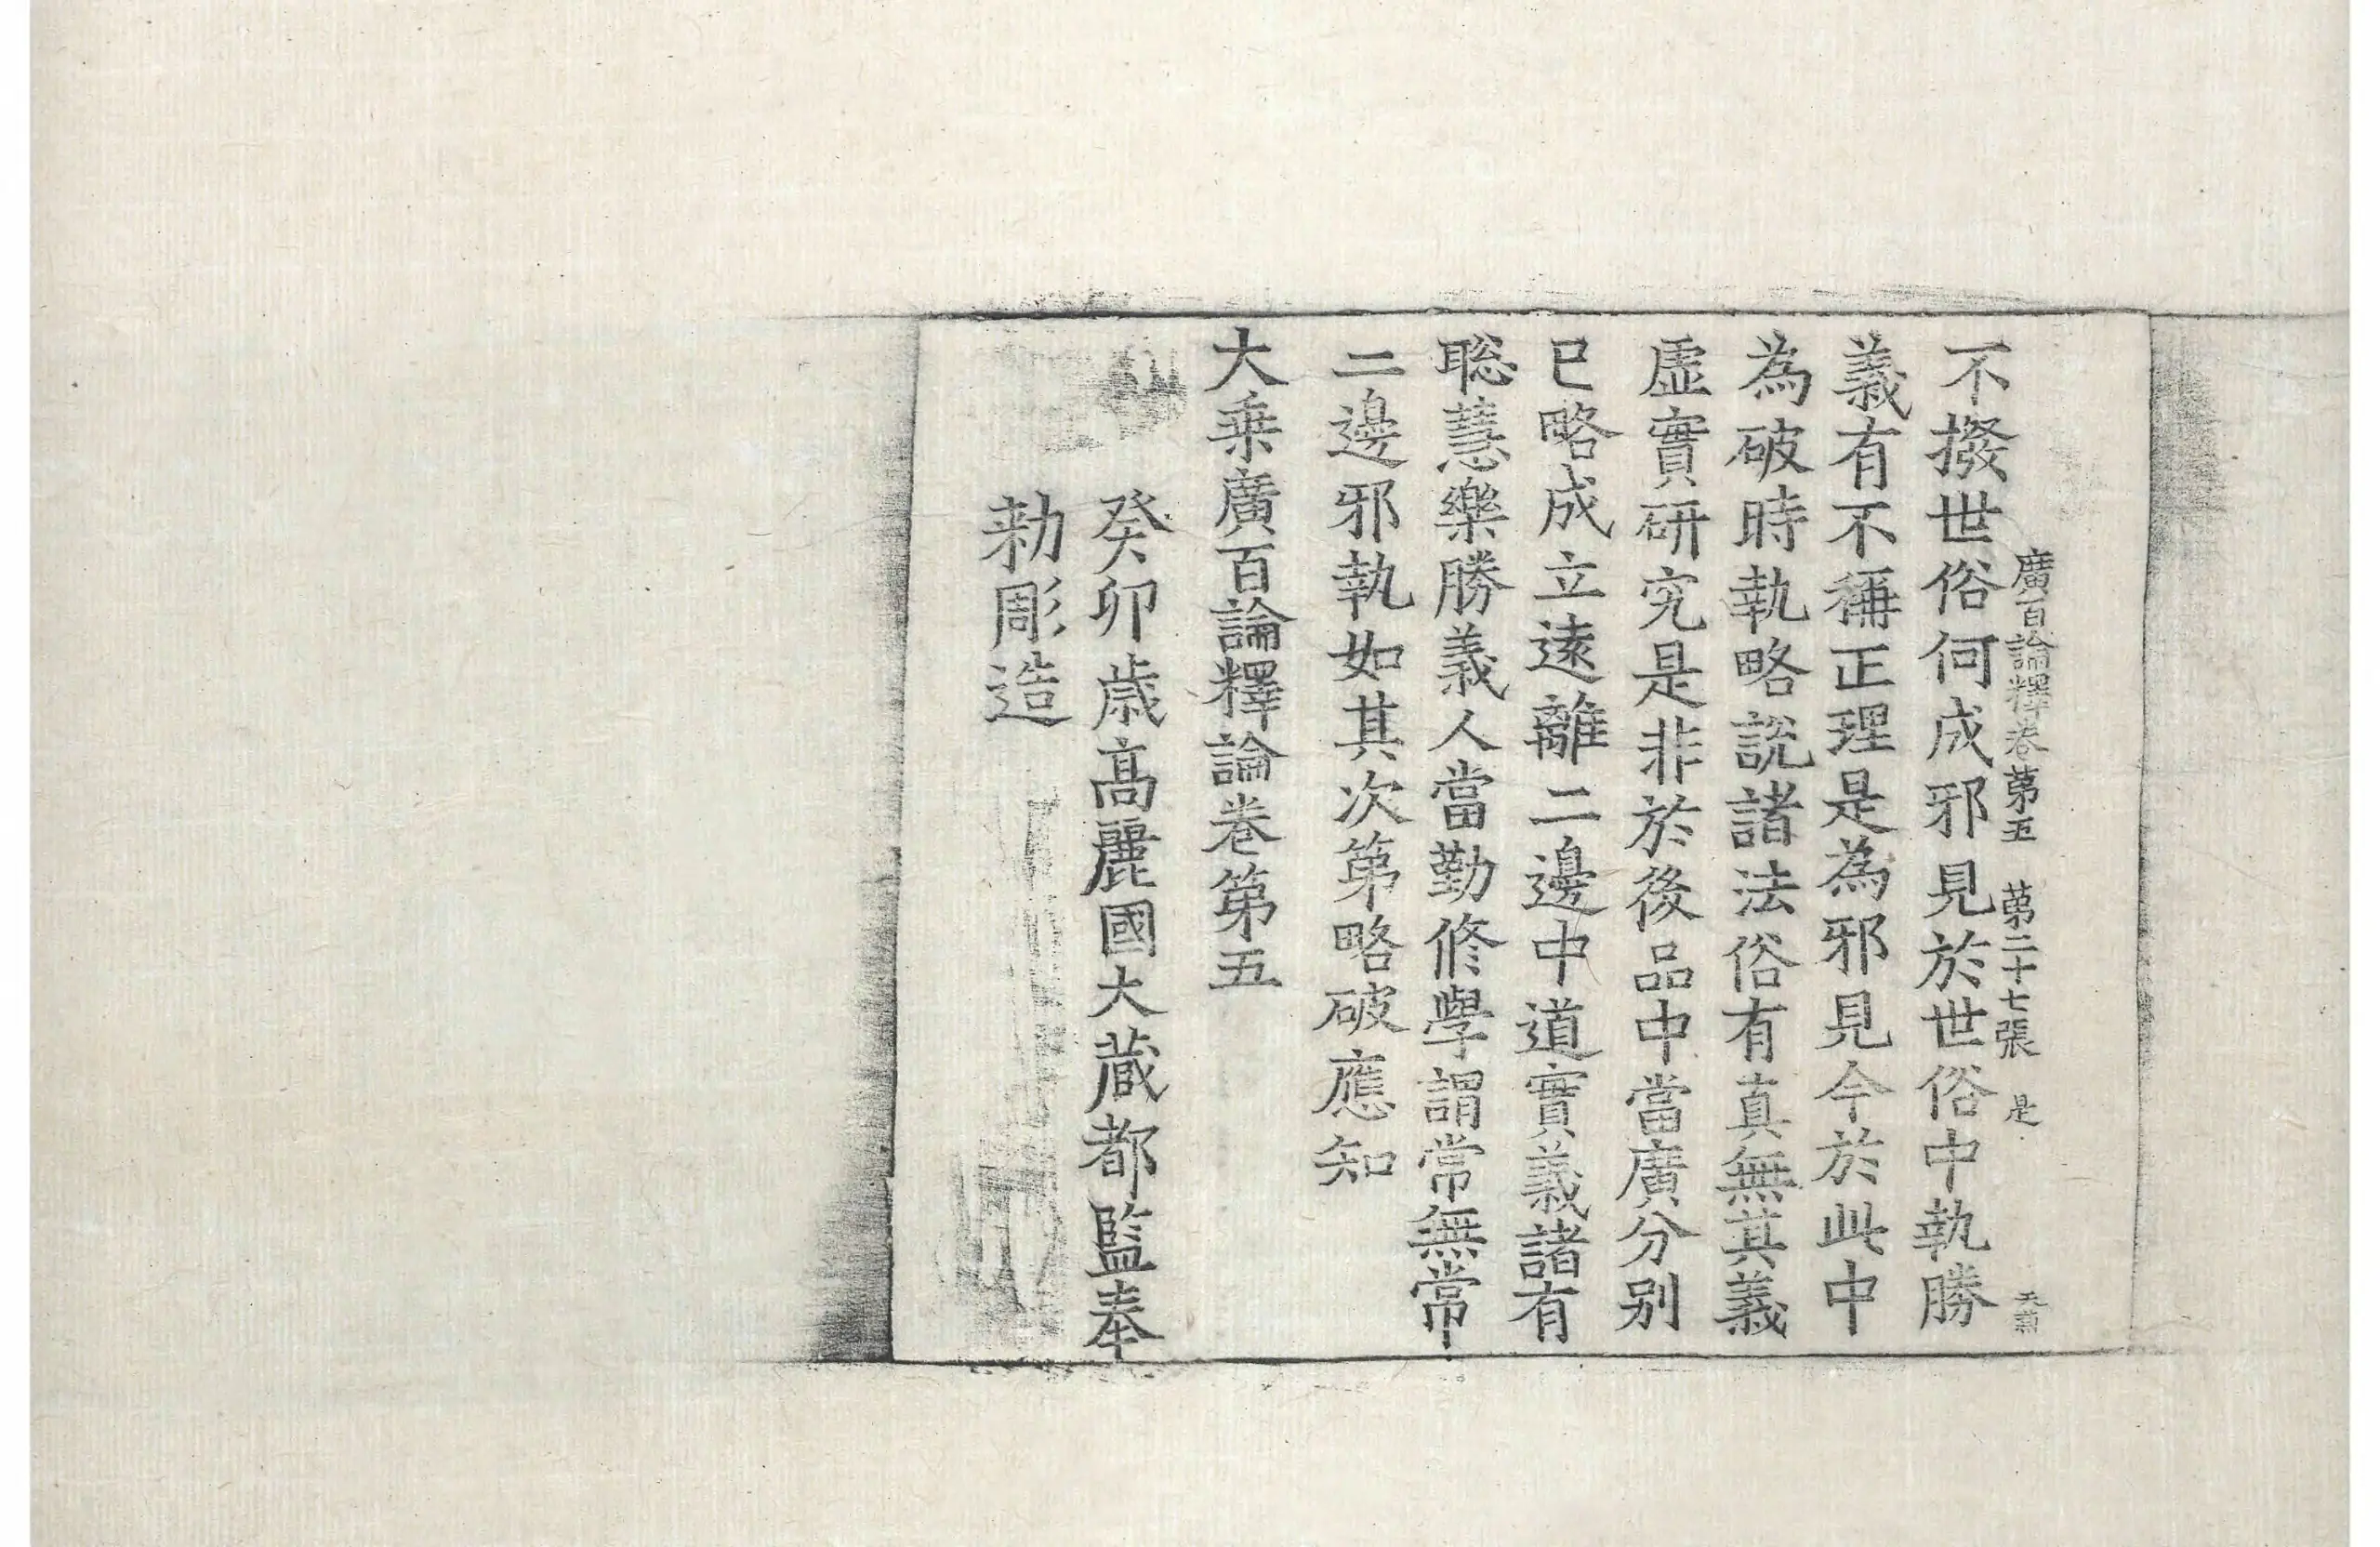 廣百論釋卷第五 第二十七張 是
不撥世俗何成邪見於世俗中執勝
義有不稱正理是為邪見今於此中
為破時執略說諸法俗有真無其義
虛實研究是非於後品中當廣分別
已略成立遠離二邊中道實義諸有
聡慧樂勝義人當勤修學謂常無常
二邊邪執如其次第略破應知
大乘廣百論釋論卷第五
癸卯歲高麗國大藏都監奉
勑彫造